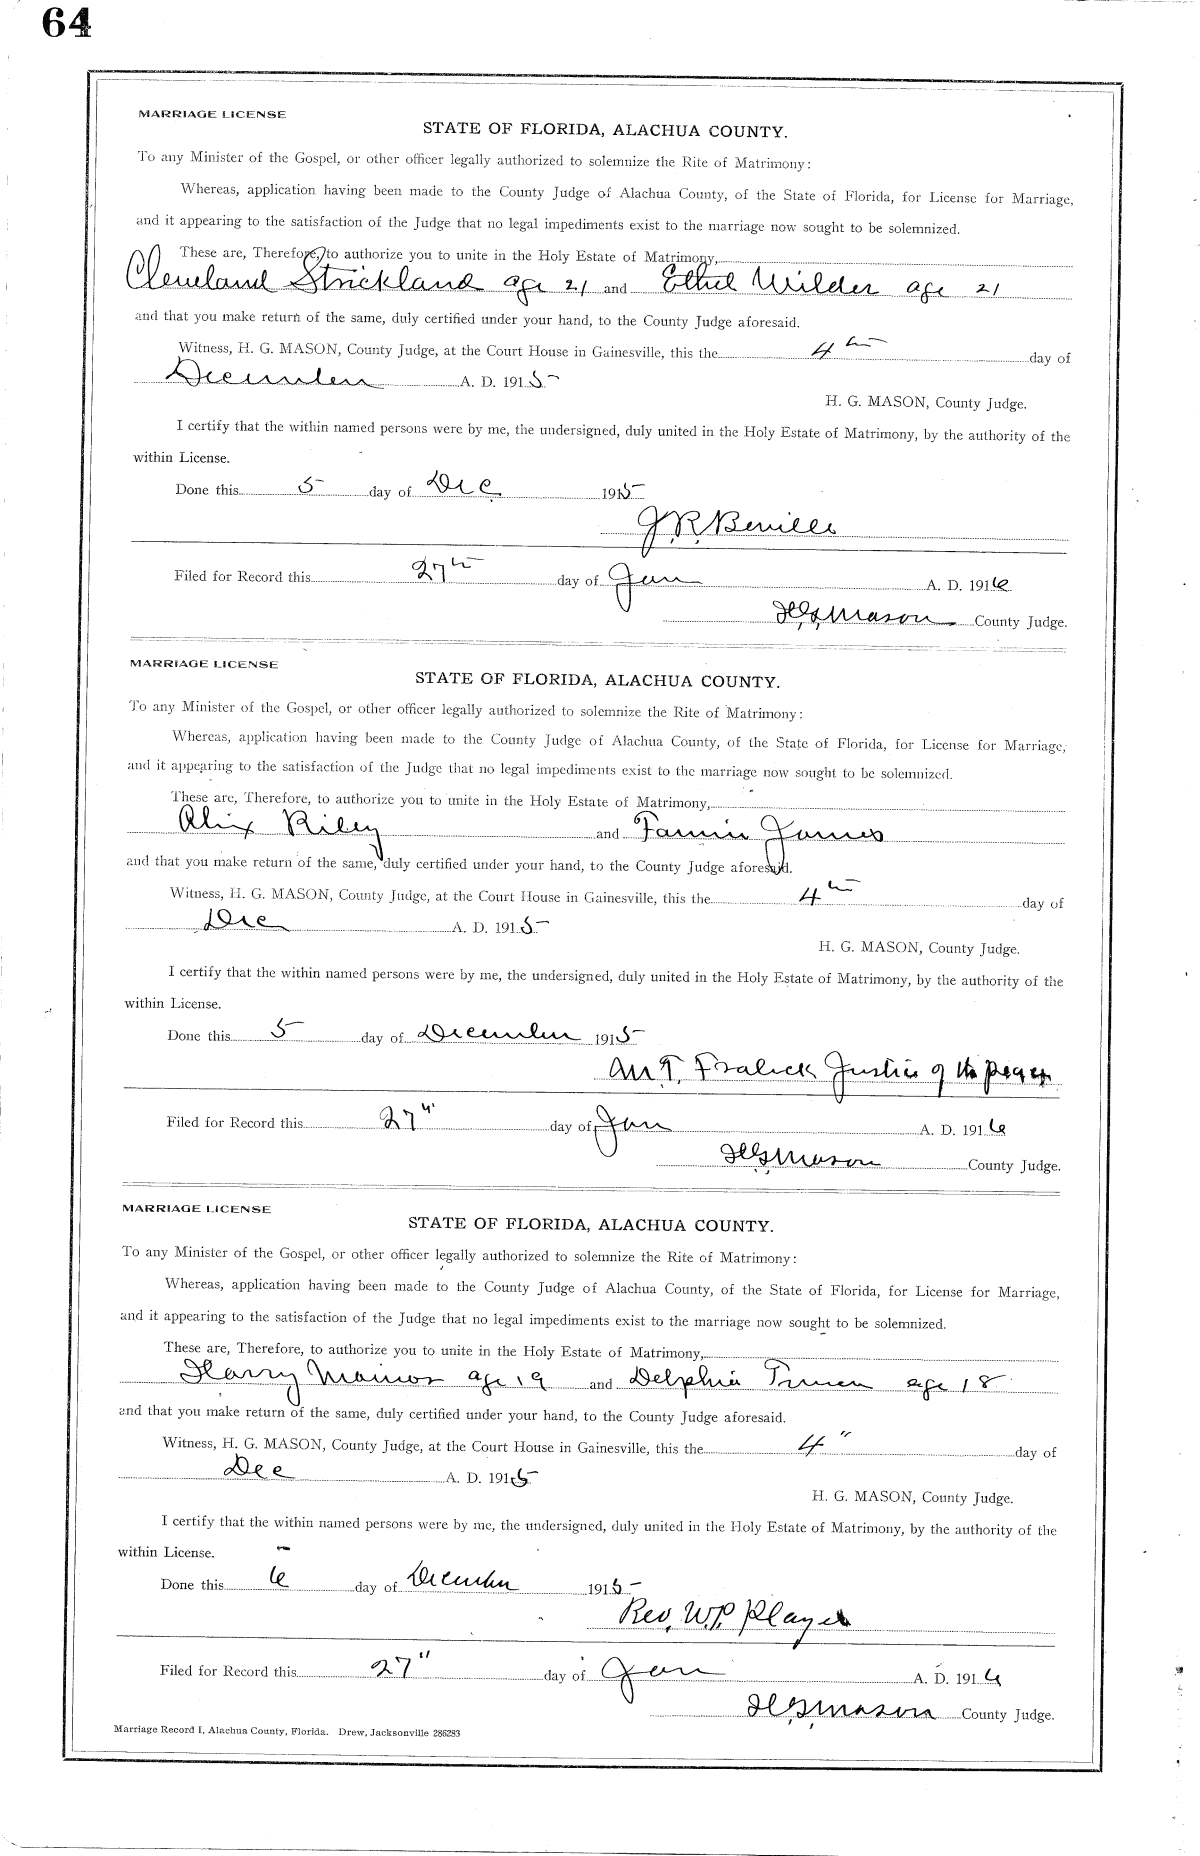 64
MARRIAGE LICENSE
STATE OF FLORIDA, ALACHUA COUNTY.
To any Minister of the Gospel, or other officer legally authorized to solemnize the Rite of Matrimony:
Whereas, application having been made to the County Judge of Alachua County, of the State of Florida, for License for Marriage,
and it appearing to the satisfaction of the Judge that no legal impediments exist to the marriage now sought to be solemnized.
These are, Therefore, to authorize you to unite in the Holy Estate of Matrimony,
Cleveland Strickland age 21 and Ethel Wilder age 21
and that you make return of the same, duly certified under your hand, to the County Judge aforesaid.
Witness, H. G. MASON, County Judge, at the Court House in Gainesville, this the 4th day of
December A. D. 1915
H. G. MASON, County Judge.
I certify that the within named persons were by me, the undersigned, duly united in the Holy Estate of Matrimony, by the authority of the
within License.
Done this 5 day of Dec 1915
J. R. Beville
Filed for Record this 27th day of Jan A. D. 1916
H. G. Mason County Judge.
MARRIAGE LICENSE
STATE OF FLORIDA, ALACHUA COUNTY.
To any Minister of the Gospel, or other officer legally authorized to solemnize the Rite of Matrimony:
Whereas, application having been made to the County Judge of Alachua County, of the State of Florida, for License for Marriage,
and it appearing to the satisfaction of the Judge that no legal impediments exist to the marriage now sought to be solemnized.
These are, Therefore, to authorize you to unite in the Holy Estate of Matrimony,
Alix Riley and Fannie James
and that you make return of the same, duly certified under your hand, to the County Judge aforesaid.
Witness, H. G. MASON, County Judge, at the Court House in Gainesville, this the 4th day of
Dec A. D. 1915
H. G. MASON, County Judge.
I certify that the within named persons were by me, the undersigned, duly united in the Holy Estate of Matrimony, by the authority of the
within License.
Done this 5 day of December 1915
M. T. Fralick Justice of the peace
Filed for Record this 27" day of Jan A. D. 1916
H. G. Mason County Judge.
MARRIAGE LICENSE
STATE OF FLORIDA, ALACHUA COUNTY.
To any Minister of the Gospel, or other officer legally authorized to solemnize the Rite of Matrimony:
Whereas, application having been made to the County Judge of Alachua County, of the State of Florida, for License for Marriage,
and it appearing to the satisfaction of the Judge that no legal impediments exist to the marriage now sought to be solemnized.
These are, Therefore, to authorize you to unite in the Holy Estate of Matrimony,
Harry age 19 and Delphia age 18
and that you make return of the same, duly certified under your hand, to the County Judge aforesaid.
Witness, H. G. MASON, County Judge, at the Court House in Gainesville, this the 4" day of
Dec A. D. 1915
H. G. MASON, County Judge.
I certify that the within named persons were by me, the undersigned, duly united in the Holy Estate of Matrimony, by the authority of the
within License.
Done this 6 day of December 1915
Rev. W. P. Player
Filed for Record this 27" day of Jan A. D. 1916
H. G. Mason County Judge.
Marriage Record I, Alachua County, Florida. Drew, Jacksonville 286283